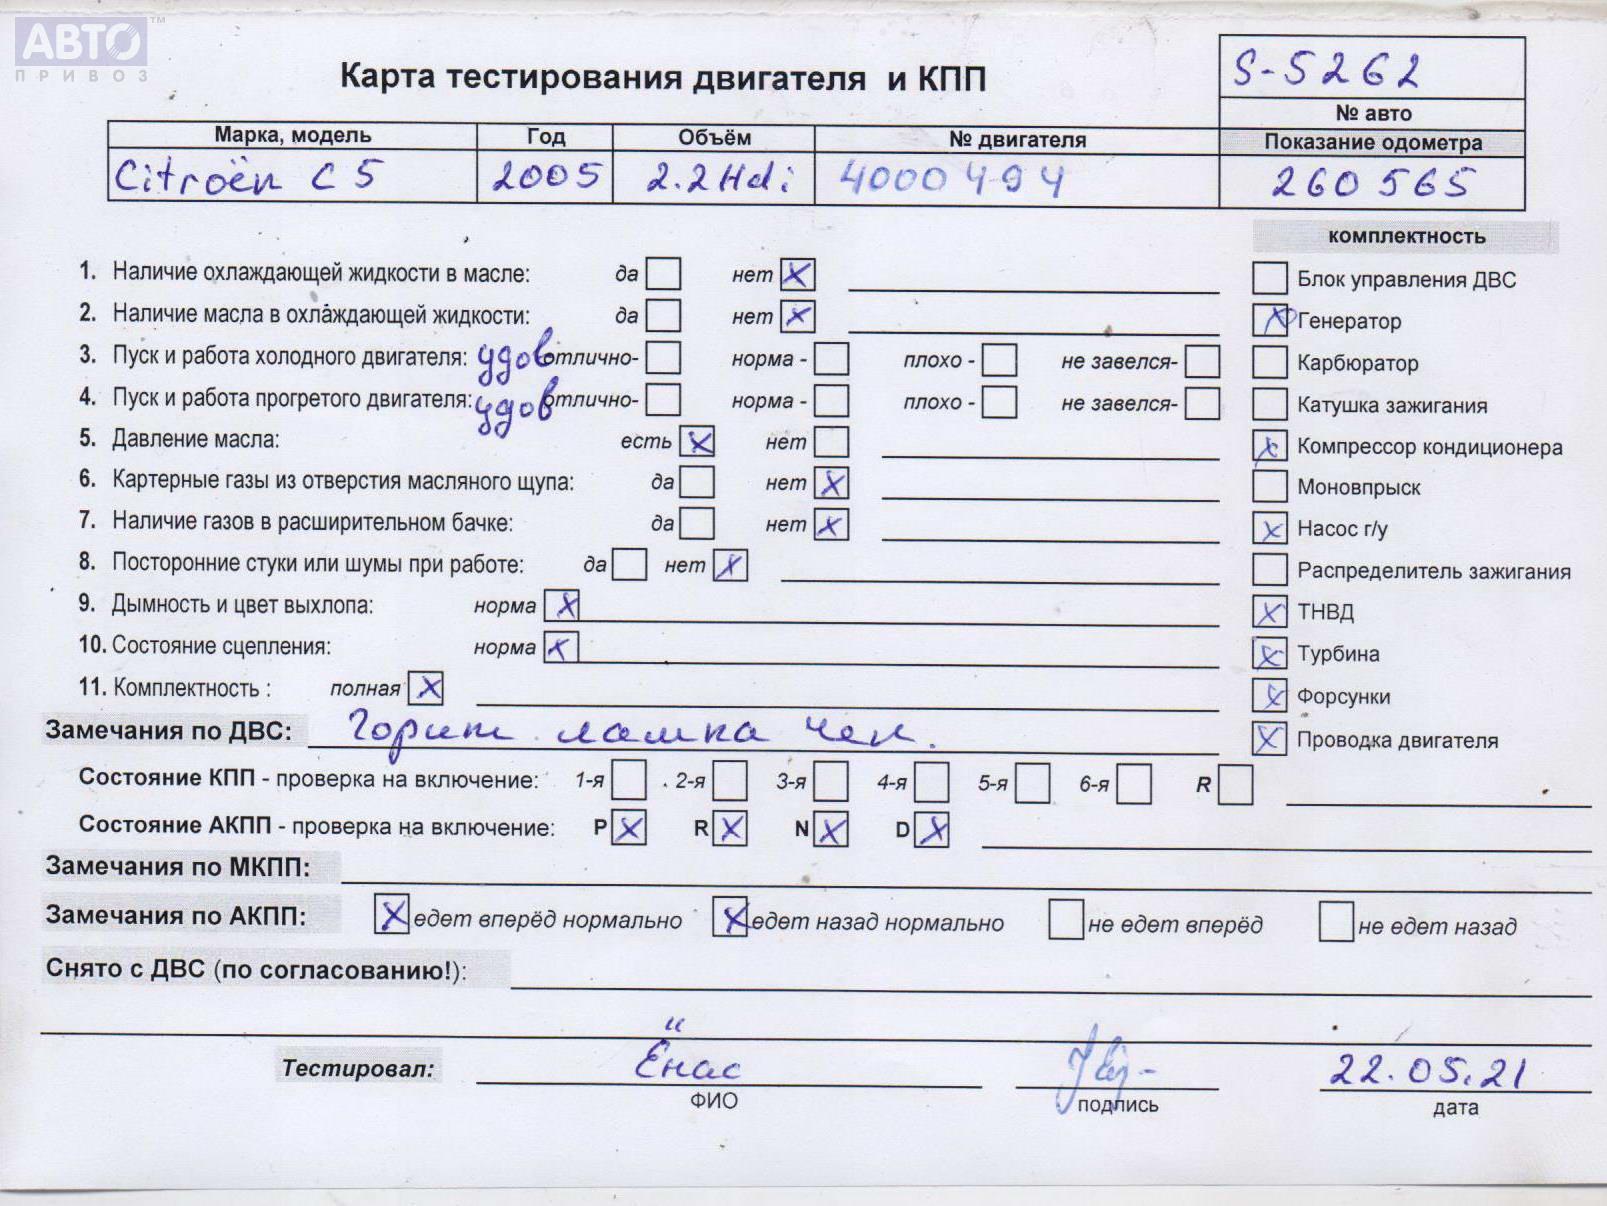 АВТО™
ПРИВОЗ
Карта тестирования двигателя и КПП
S-5262
№ авто
Марка, модель Год Объём № двигателя Показание одометра
Citroën C5 2005 2.2Hdi 4000494 260565
комплектность
1. Наличие охлаждающей жидкости в масле: да нет X
Блок управления ДВС
2. Наличие масла в охлаждающей жидкости: да нет X
X Генератор
3. Пуск и работа холодного двигателя: удов отлично- норма - плохо - не завелся-
Карбюратор
4. Пуск и работа прогретого двигателя: удов отлично- норма - плохо - не завелся-
Катушка зажигания
5. Давление масла: есть X нет
X Компрессор кондиционера
6. Картерные газы из отверстия масляного щупа: да нет X
Моновпрыск
7. Наличие газов в расширительном бачке: да нет X
X Насос г/у
8. Посторонние стуки или шумы при работе: да нет X
Распределитель зажигания
9. Дымность и цвет выхлопа: норма X
X ТНВД
10. Состояние сцепления: норма X
X Турбина
11. Комплектность : полная X
X Форсунки
Замечания по ДВС: Горит лампа чек.
X Проводка двигателя
Состояние КПП - проверка на включение: 1-я 2-я 3-я 4-я 5-я 6-я R
Состояние АКПП - проверка на включение: P X R X N X D X
Замечания по МКПП:
Замечания по АКПП: X едет вперёд нормально X едет назад нормально не едет вперёд не едет назад
Снято с ДВС (по согласованию!):
Тестировал: Енас 22.05.21
ФИО подпись дата